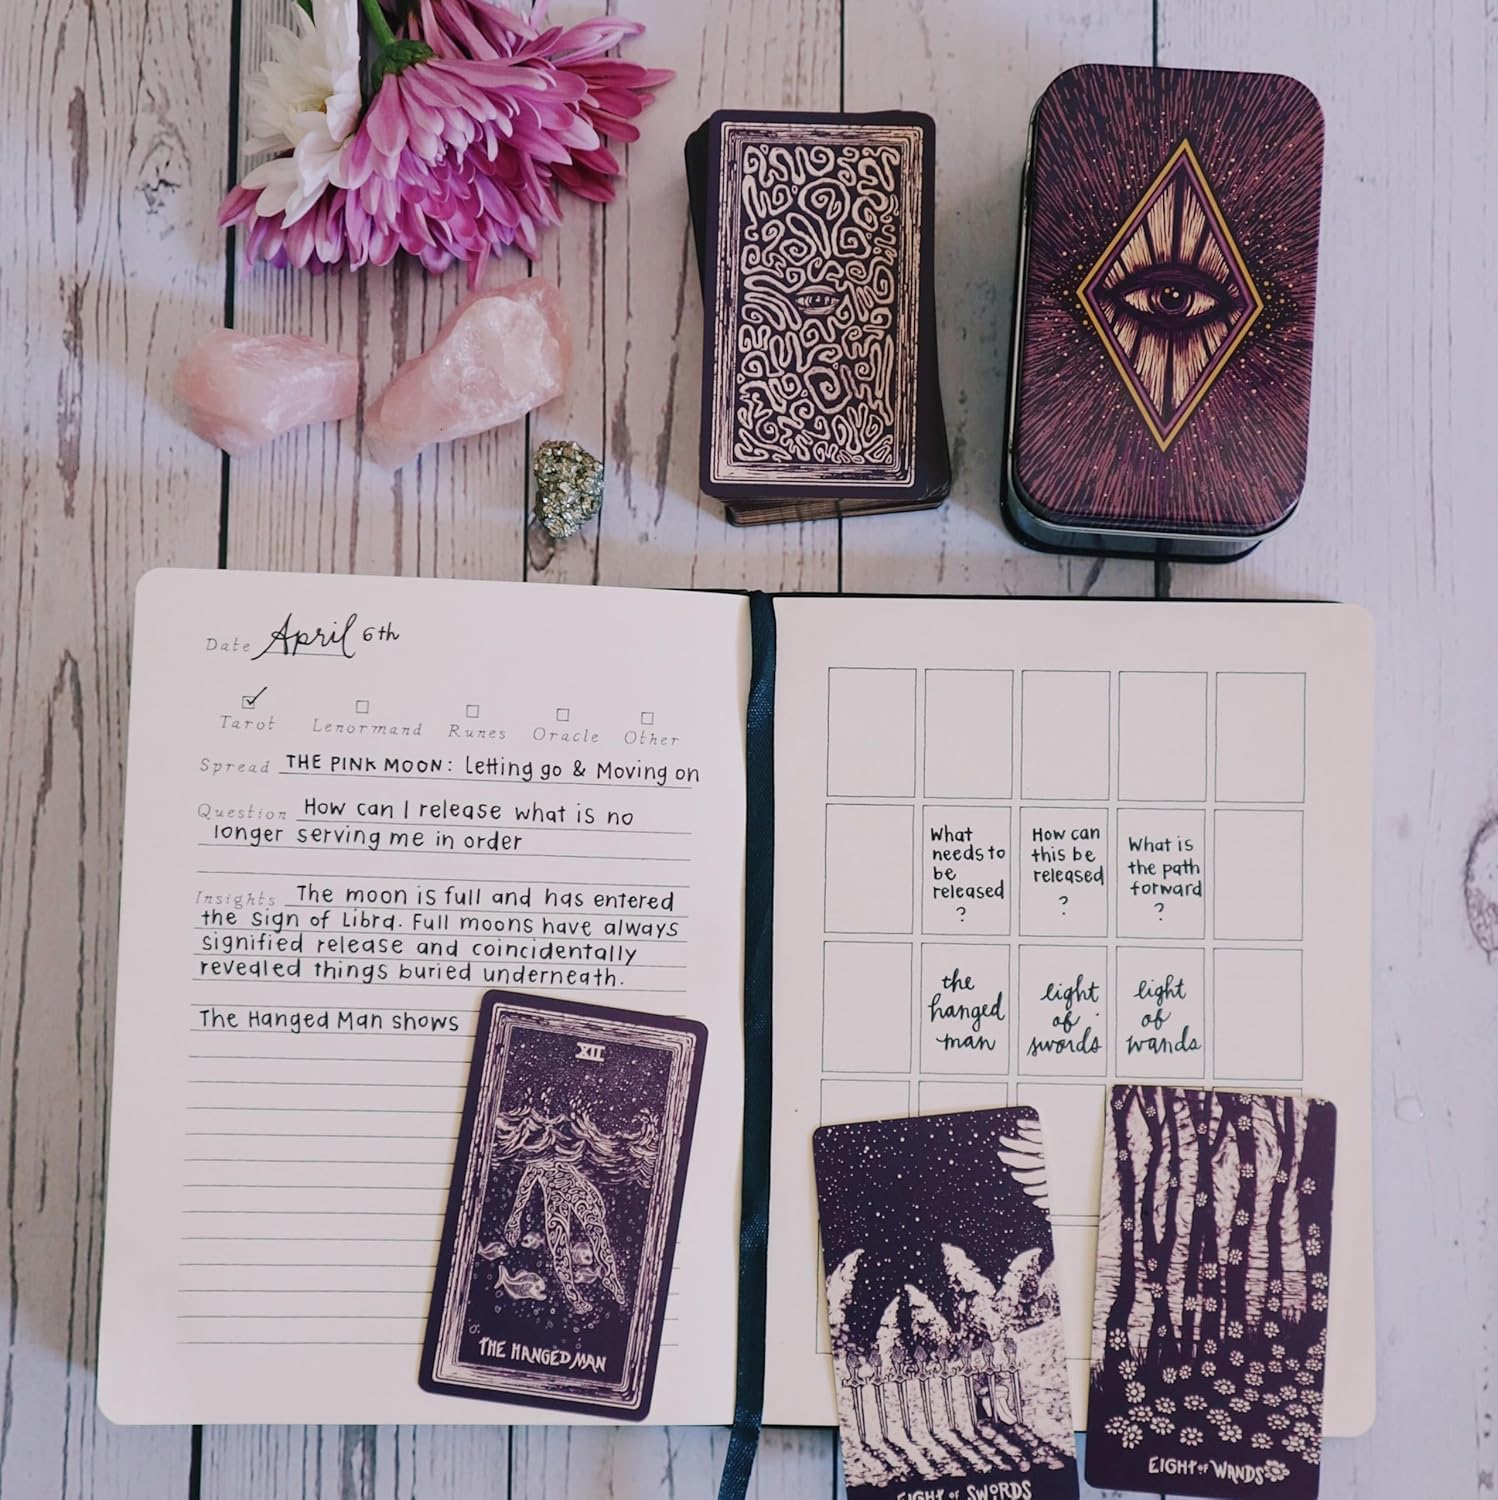 Date April 6th
Tarot Lenormand Runes Oracle Other
Spread THE PINK MOON: Letting go & Moving on
Question How can I release what is no
longer serving me in order
Insights The moon is full and has entered
the sign of Libra. Full moons have always
signified release and coincidentally
revealed things buried underneath.
The Hanged Man shows
XII
THE HANGED MAN
What
needs to
be
released
?
How can
this be
released
?
What is
the path
forward
?
the
hanged
man
eight
of
swords
eight
of
wands
EIGHT OF SWORDS
EIGHT OF WANDS